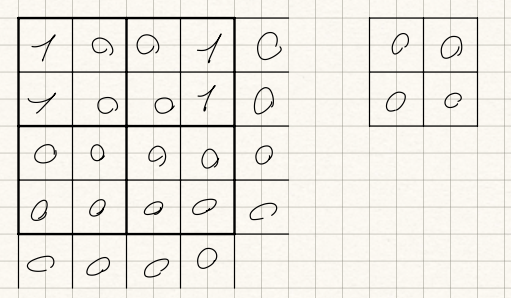 1 0 0 1 0 0 0
1 0 0 1 0 0 0
0 0 0 0 0
0 0 0 0 0
0 0 0 0